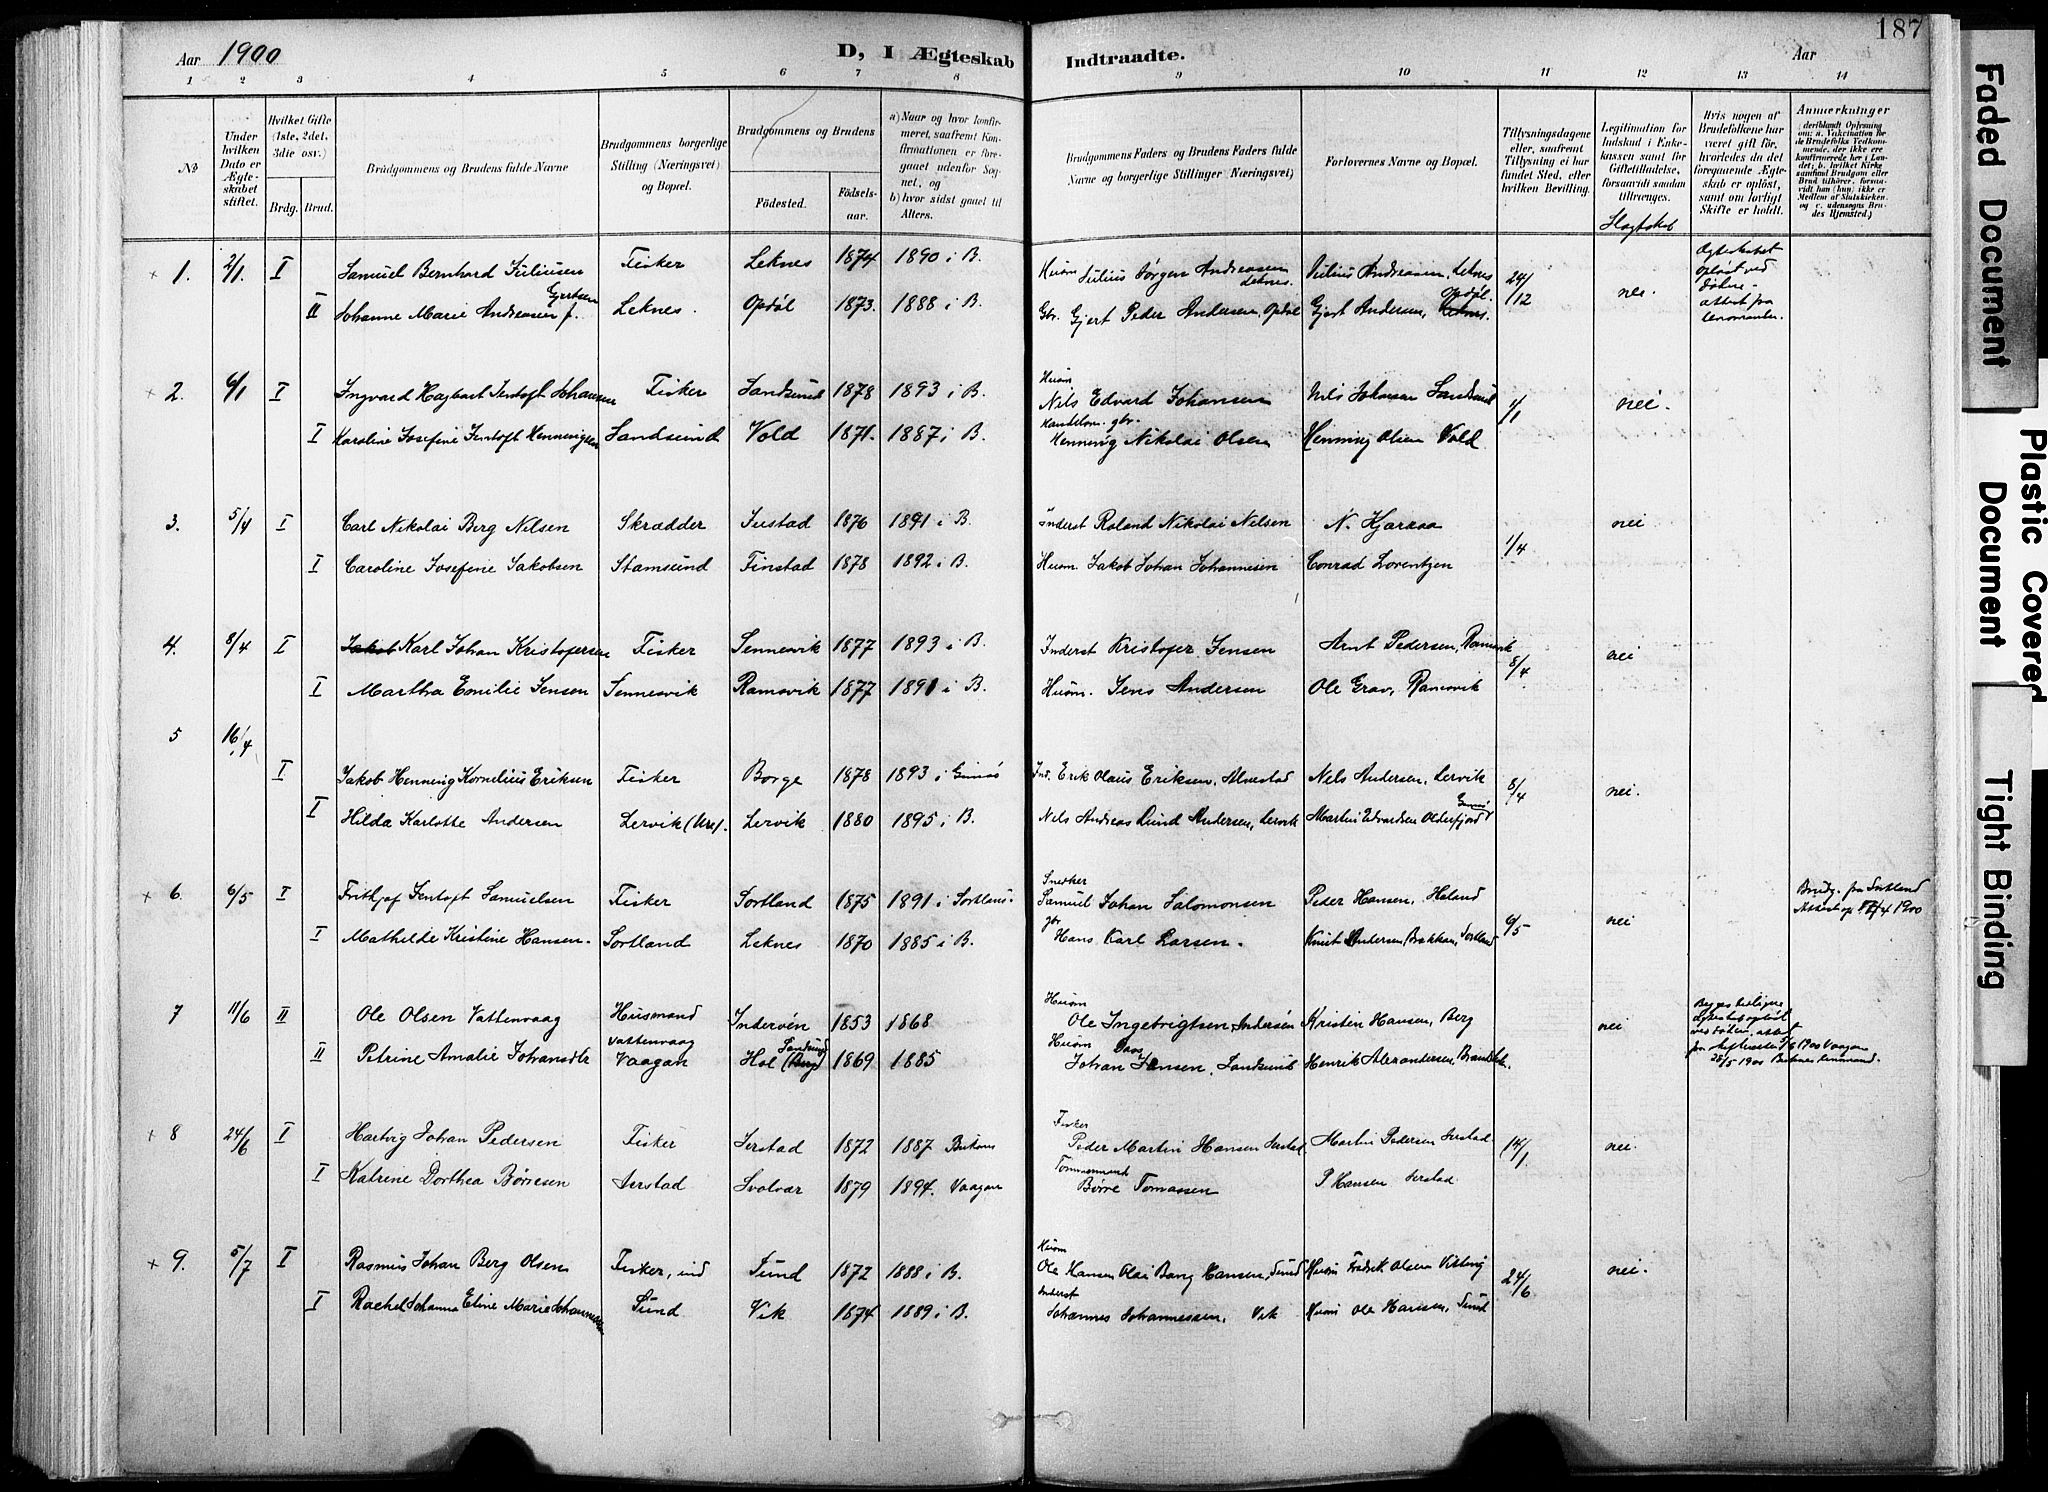 187
Aar 1900 D, I Ægteskab Indtraadte. Aar
1 2 3 4 5 6 7 8 9 10 11 12 13 14
No
Under hvilken Dato er Ægteskabet stiftet.
Hvilket Gifte (1ste, 2det, 3die osv.)
Brdg. Brud.
Brudgommens og Brudens fulde Navne
Brudgommens borgerlige Stilling (Næringsvei) og Bopæl.
Brudgommens og Brudens
Fødested. Fødselsaar.
a) Naar og hvor konfirmeret, saafremt Konfirmationen er foregaaet udenfor Sognet, og
b) hvor sidst gaaet til Alters.
Brudgommens Faders og Brudens Faders fulde Navne og borgerlige Stillinger (Næringsvei)
Forlovernes Navne og Bopæl.
Tillysningsdagene eller, saafremt Tillysning ei har fundet Sted, efter hvilken Bevilling.
Legitimation for Indskud i Enkekassen samt for Giftetilladelse, forsaavidt saadan tiltrænges.
Hvis nogen af Brudefolkene har været gift før, hvorledes da det foregaaende Ægteskab er opløst, samt om lovligt Skifte er holdt.
Anmærkninger
(deriblandt Oplysning om: a. Vakcination for de Brudefolks Vedkommende, der ikke ere konfirmerede her i Landet; b. hvilket Kirkesamfund Brudgom eller Brud tilhører, forsaavidt han (hun) ikke er Medlem af Statskirken, og c. udensogns Brudes Hjemsted.)
Slagtskab
+ 1. 2/1. I Samuel Bernhard Juliussen Fisker Leknes 1874 1890 i B. Husm Julius Jørgen Andreassen Leknes. Julius Andreassen, Leknes 24/12 nei. Ægteskabet opløst ved Døden - attest fra
II Johanne Marie Andreassen f. Gjertsen Leknes. Opdøl 1873. 1888 i B. Gbr. Gjert Peder Andersen, Opdøl Gjert Andersen, Opdøl.
+ 2. 6/1 I Ingvard Hagbart Jentoft Johansen Fisker Sandsund 1878 1893 i B. Husm Nils Edvard Johansen Nils Johansen Sandsund 1/1 nei.
I Karoline Josefine Jentoft Henningsen Sandsund Vold 1871. 1887 i B. Handelsm. gbr. Henning Nikolai Olsen Henning Olsen Vold
3. 5/4 I Carl Nikolai Berg Nilsen Skrædder Justad 1876 1891 i B. Inderst Roland Nikolai Nelsen N. Kjaraas 1/4 nei
I Caroline Josefine Jakobsen Stamsund Finstad 1878 1892 i B. Husm. Jakob Johan Johannesen Conrad Lorentzen
4. 8/4 I Jakob Karl Johan Kristofersen Fisker Sennesvik 1877 1893 i B. Inderst Kristofer Jensen Arnt Pedersen, Ramsvik 8/4 nei
I Martha Emilie Jensen Sennesvik Ramsvik 1877 1891 i B. Husm. Jens Andersen Ole Grav, Ramsvik
5 16/4
I Jakob Henning Kornelius Eriksen Fisker Borge 1878 1893 i Gimsø Ind. Erik Olaus Eriksen, Alvestad Nels Andersen, Lervik 8/4 nei.
I Hilda Karlotte Andersen Lervik (Ure). Lervik 1880 1895 i B. Nels Andreas Lund Andersen, Lervik Martin Edvardsen Olderfjord Gimsø
+ 6. 6/5 I Frithjof Jentoft Samuelsen Fisker Sortland 1875 1891 i Sortland Snedker Samuel Johan Salomonsen Peder Hansen, Haland 6/5 nei Brudg. fra Sortland
I Mathilde Kristine Hansen. Sortland Leknes 1870 1885 i B. gbr Hans Karl Larsen. Knut Andersen, Brekkan, Sortland
7 11/6 II Ole Olsen Vattenvaag Husmand Vattenvaag Indervén 1853 1868 Husm Ole Ingebrigtsen, Kristin Hansen, Berg nei
II Petrine Amalie Johansdtr Vaagan Hol Sandsund (Berg) 1869 1885 Husm Johan Jensen, Sandsund Henrik Alexandersen,
+ 8 24/6 I Hartvig Johan Pedersen Fisker Serstad 1872 1887 Buksnes Fisker Peder Martin Hansen Serstad Martin Pedersen Serstad 14/1 nei.
I Katrine Dorthea Børresen Serstad Svolvær 1879 1894. Vaagan Tømmermand Børre Tomassen P Hansen Serstad
+ 9. 5/7 I Rasmus Johan Berg Olsen Fisker, ind Sund 1872 1888 i B. Husm Ole Hansen Olai Bang Hansen, Sund Husm Fredrik Olsen 24/6 nei.
I Rachel Johanna Eline Marie Johannesen Sund Vik 1874 1889 i B. Inderst Johannes Johannessen, Vik Husm Ole Hansen, Sund
Faded Document
Plastic Covered Document
Tight Binding